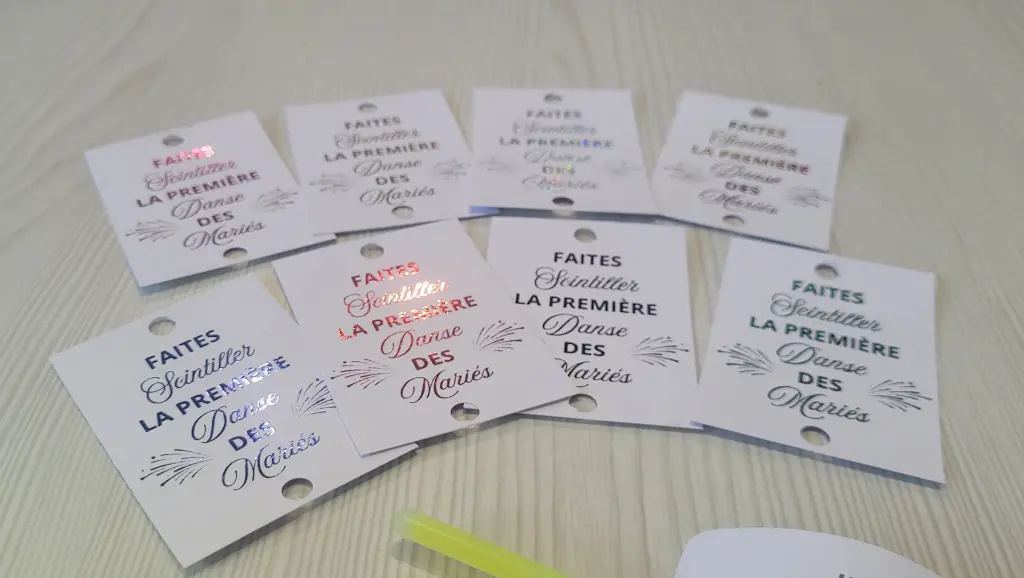 FAITES
Scintiller
LA PREMIÈRE
Danse
DES
Mariés
FAITES
Scintiller
LA PREMIÈRE
Danse
DES
Mariés
FAITES
Scintiller
LA PREMIÈRE
Danse
DES
Mariés
FAITES
Scintiller
LA PREMIÈRE
Danse
DES
Mariés
FAITES
Scintiller
LA PREMIÈRE
Danse
DES
Mariés
FAITES
Scintiller
LA PREMIÈRE
Danse
DES
Mariés
FAITES
Scintiller
LA PREMIÈRE
Danse
DES
Mariés
FAITES
Scintiller
LA PREMIÈRE
Danse
DES
Mariés